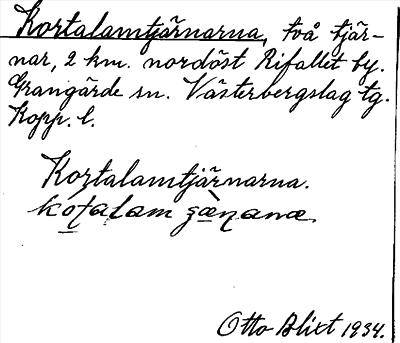 Kortalamtjärnarna, två tjär-
nar, 2 km. nordöst Rifallet by.
Grangärde sn. Västerbergslag tg.
Kopp. l.
Kortalamtjärnarna.
Otto Blixt 1934.